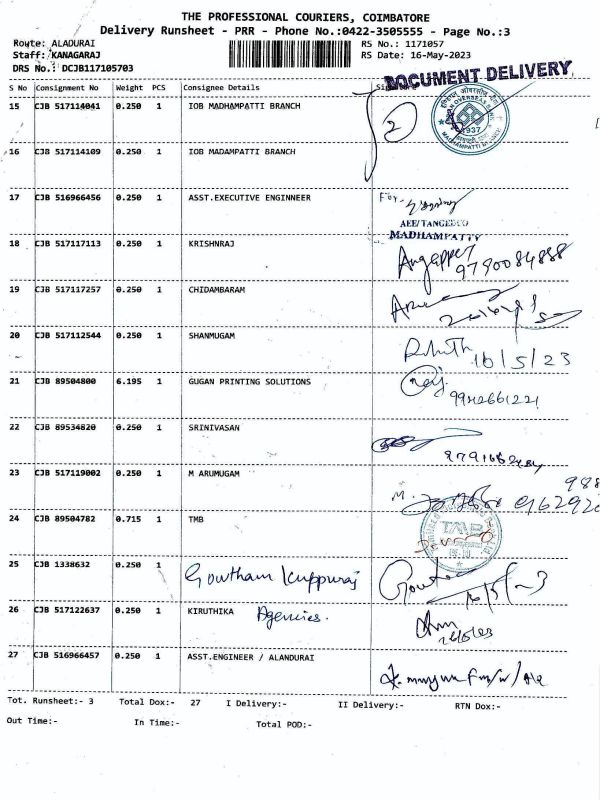 THE PROFESSIONAL COURIERS, COIMBATORE
Delivery Runsheet - PRR - Phone No.:0422-3505555 - Page No.:3
Route: ALADURAI
RS No.: 1171057
Staff: KANAGARAJ
RS Date: 16-May-2023
DRS No.: DCJB117105703
DOCUMENT DELIVERY
S No Consignment No Weight PCS Consignee Details
15 CJB 517114041 0.250 1 IOB MADHAMPATTI BRANCH 2
1937
16 CJB 517114109 0.250 1 IOB MADAMPATTI BRANCH
17 CJB 516966456 0.250 1 ASST.EXECUTIVE ENGINNEER For
AEE/TANGEDCO
MADHAMPATTY
18 CJB 517117113 0.250 1 KRISHNRAJ Angappan
9790084888
19 CJB 517117257 0.250 1 CHIDAMBARAM
20 CJB 517112544 0.250 1 SHANMUGAM 16/5/23
21 CJB 89504800 6.195 1 GUGAN PRINTING SOLUTIONS
9942661221
22 CJB 89534820 0.250 1 SRINIVASAN
23 CJB 517119002 0.250 1 M ARUMUGAM M.
24 CJB 89504782 0.715 1 TMB TMB
25 CJB 1338632 0.250 1 Gowtham Kuppuraj
26 CJB 517122637 0.250 1 KIRUTHIKA Agencies.
27 CJB 516966457 0.250 1 ASST.ENGINEER / ALANDURAI
Tot. Runsheet:- 3 Total Dox:- 27 I Delivery:- II Delivery:- RTN Dox:-
Out Time:- In Time:- Total POD:-